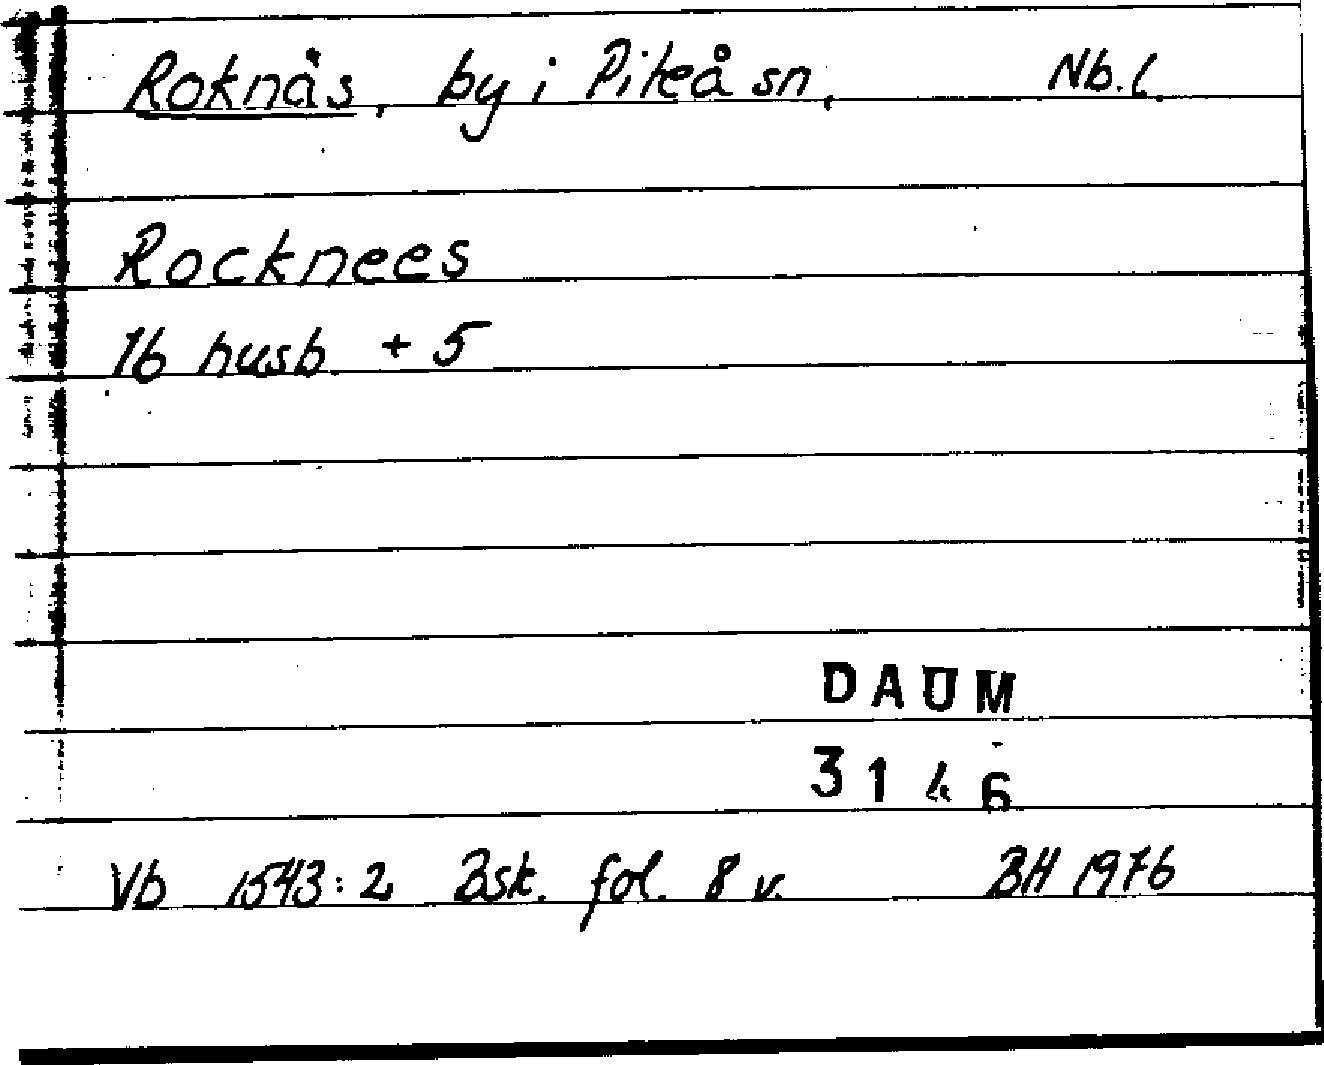 Roknäs, by i Piteå sn, Nb.l.
Rocknees
16 husb. + 5
DAUM
3146
Vb 1543:2 Bsk. fol. 8 v. BH 1976